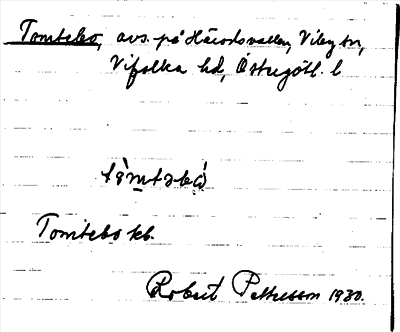 Tomtebo, avs. på Häradsvallen, Viby sn,
Vifolka hd, Östergötl. l
tòmtəbó
Tomtebo kb.
Robert Pettersson 1930.